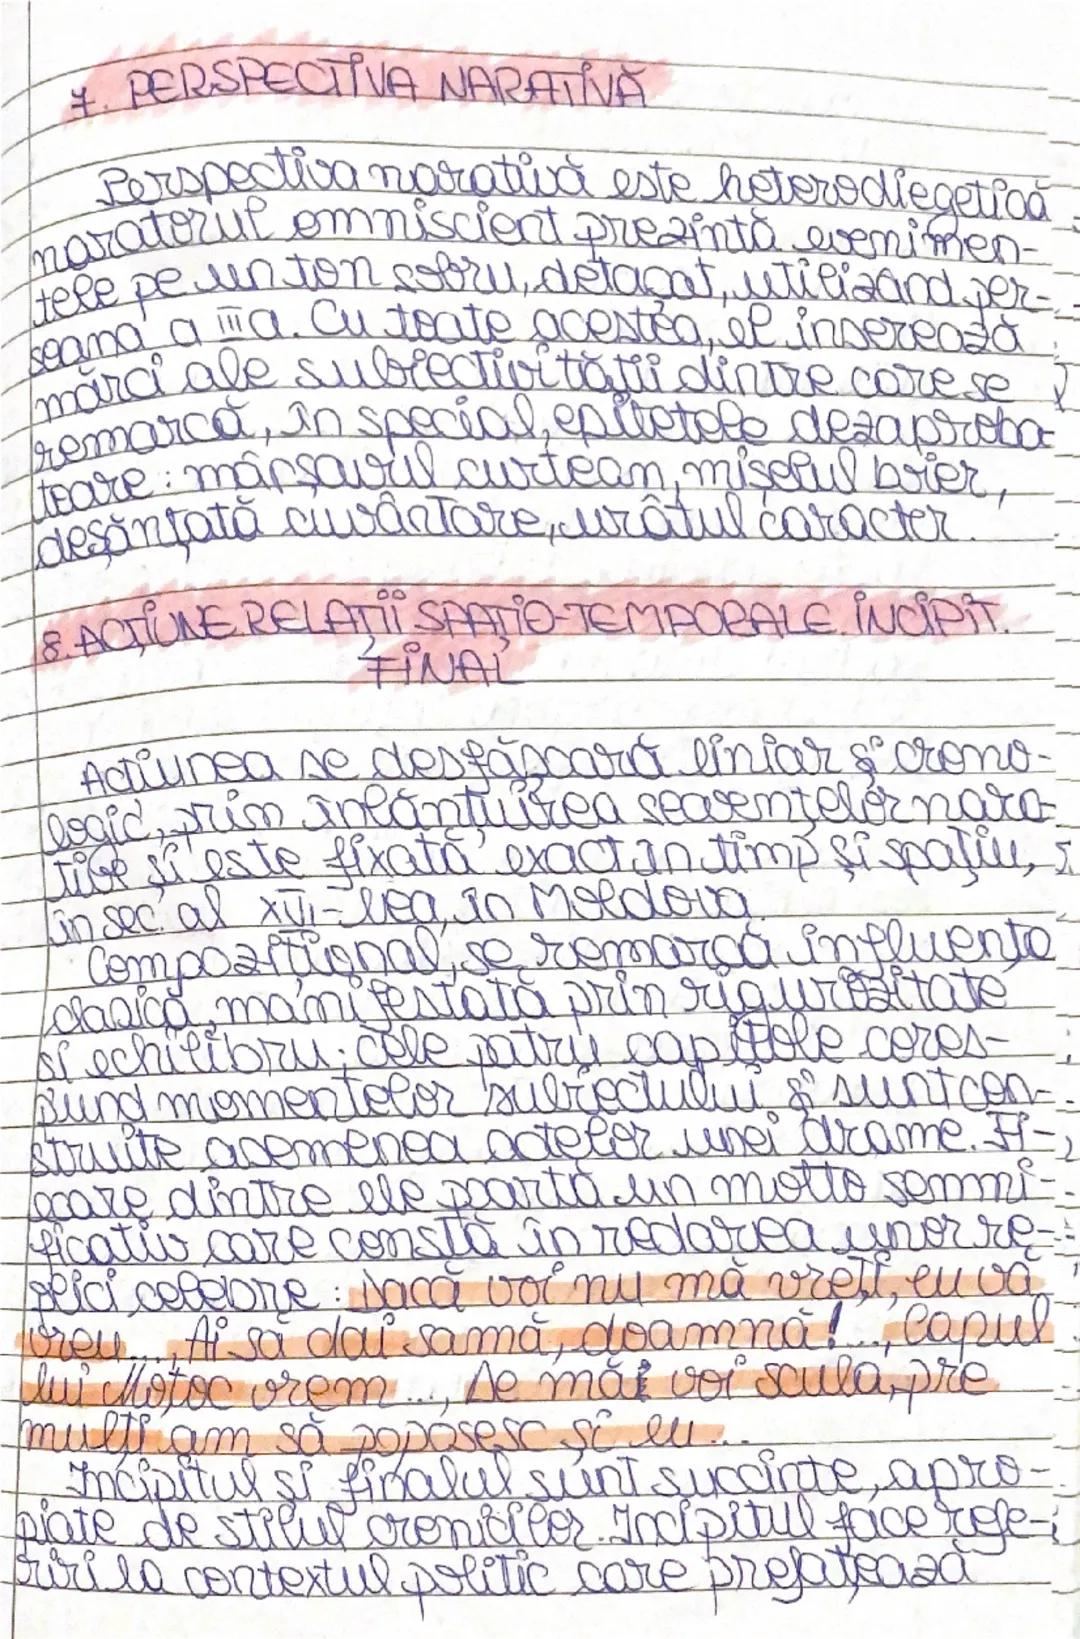 7. PERSPECTIVA NARATIVĂ
Perspectiva narativă este heterodiegetică
naratorul omniscient prezintă evenimen-
tele pe un ton sobru, detașat, utilizând per-
soana a III a. Cu toate acestea, el inserează
mărci ale subiectivității dintre care se
remarcă, în special, epitetele dezaproba-
toare: mârșavul curtean, mișelul boier,
deșănțată cuvântare, urâtul caracter.
8. ACȚIUNE. RELAȚII SPAȚIO-TEMPORALE. INCIPIT.
FINAL
Acțiunea se desfășoară liniar și crono-
logic, prin înlănțuirea secvențelor nara-
tive și este fixată exact în timp și spațiu,
în sec. al XVI-lea, în Moldova.
Compozițional, se remarcă influența
clasică, manifestată prin rigurozitate
și echilibru; cele patru capitole cores-
pund momentelor subiectului și sunt con-
struite asemenea actelor unei drame. Fi-
ecare dintre ele poartă un motto semni-
ficativ care constă în redarea unor re-
plici celebre: Dacă voi nu mă vreți, eu vă
vreu..., Ai să dai samă, doamnă!..., Capul
lui Moțoc vrem..., De mă voi scula, pre
mulți am să poposesc și eu...
Incipitul și finalul sunt succinte, apro-
piate de stilul cronicilor. Incipitul face refe-
riri la contextul politic care prefațează